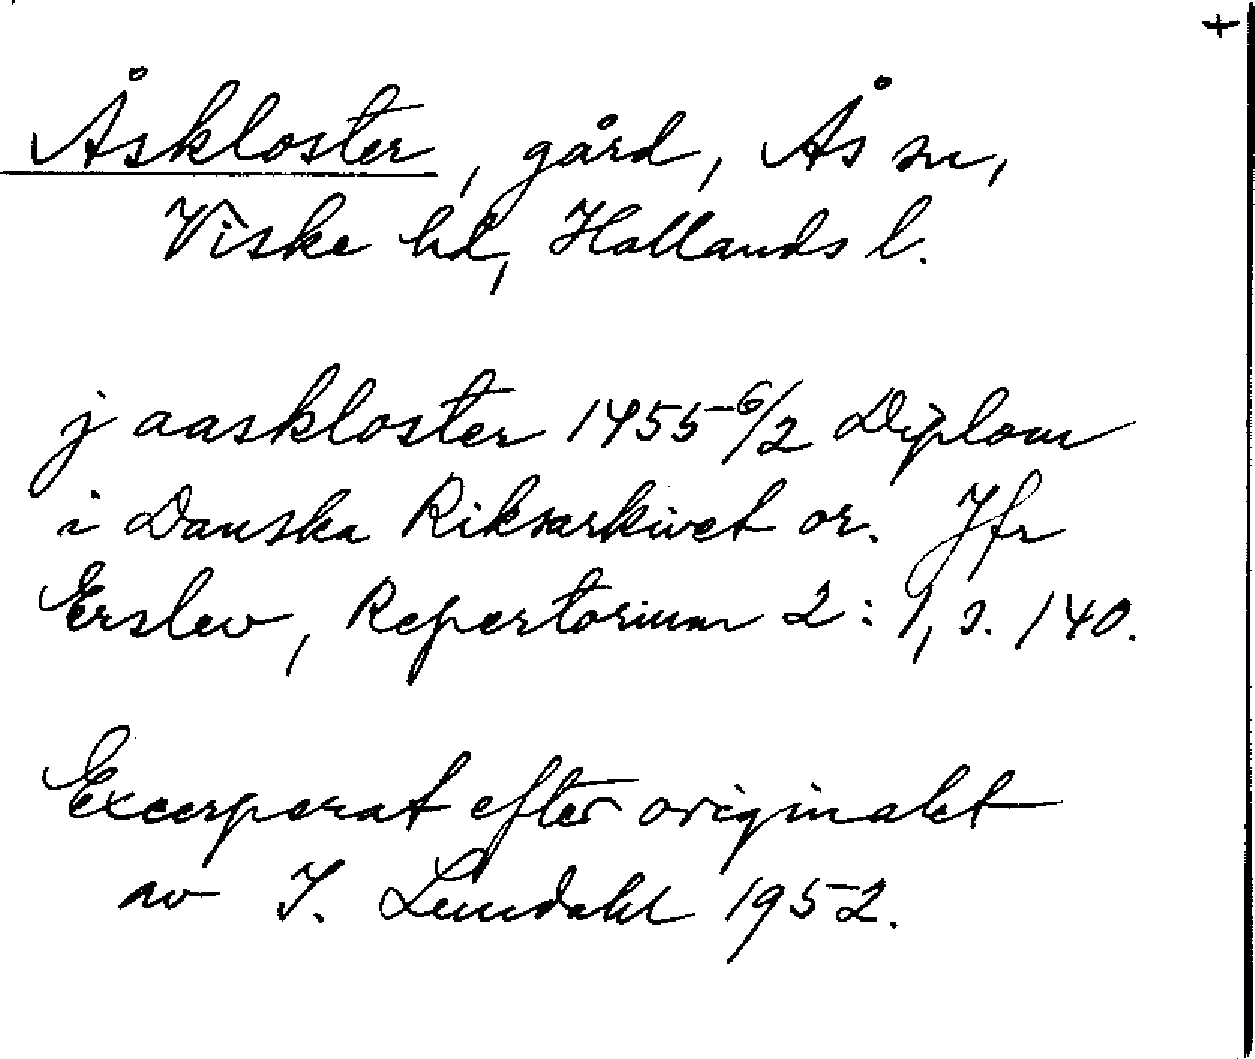 +
Åskloster, gård, Ås sn,
Viske hd, Hallands l.
j aaskloster 1455 6/2 Diplom
i Danska Riksarkivet or. Jfr
Erslev, Repertorium 2:1, s. 140.
Excerperat efter originalet
av I. Lundahl 1952.